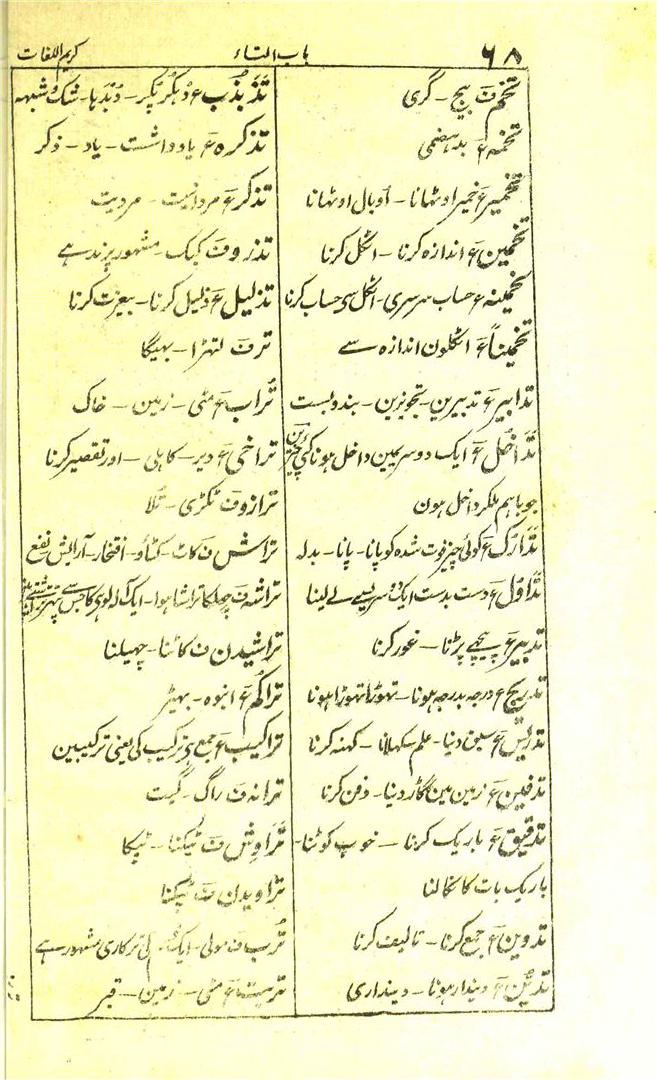 ۶۸ باب التاء کریم اللغات
تخم ف بیج - گری
تخمہ ع بدہضمی
تخمیر ع خمیر اوٹھانا - اوبال اوٹھانا
تخمین ع اندازہ کرنا - اٹکل کرنا
تخمینہ ع حساب سرسری - اٹکل سی حساب کرنا
تخمیناً ع اٹکلون اندازہ سے
تدابیر ع تدبیرین - تجویزین - بندوبست
تَدَاخُل ع ایک دوسریمین داخل ہونا کئی چیزین
جو باہم ملکر داخل ہون
تَدَارُک ع کوئی چیز فوت شدہ کو پانا - پانا - بدلہ
تَدَاوُل ع دست بدست ایک دوسریسے لے لینا
تدبیر ع پیچھے پڑنا - غور کرنا
تدریج ع درجہ بدرجہ ہونا - تھوڑا تھوڑا ہونا
تدریس ع سبق دینا - علم سکھلانا - کہنہ کرنا
تدفین ع زمین مین گاڑ دینا - دفن کرنا
تدقیق ع باریک کرنا - خوب کوٹنا -
باریک بات کا نکالنا
تدوین ع جمع کرنا - تالیف کرنا
تَدَیُّن ع دیندار ہونا - دینداری
تَذَبْذُب ع دُہکڑ پکڑ - دُبدہا - شک و شبہہ
تذکرہ ع یادداشت - یاد - ذکر
تذکر ع مردانیت - مردیت
تذرو ف کبک - مشہور پرند ہے
تذلیل ع ذلیل کرنا - بیعزت کرنا
تر ف لتھڑا - بھیگا
تُراب ع مٹی - زمین - خاک
تراخی ع دیر - کاہلی - اور تقصیر کرنا
ترازو ف تکڑی - تُلا
تراش ف کاٹ - کٹاؤ - افتخار - آرایش نفع
تراشہ ف چھلکا تراشا ہوا - ایک آلہ لوہی کا جس سے پتھر
تراشیدن ف کاٹنا - چھیلنا
تراکُم ع انبوہ - بھیڑ
تراکیب ع جمع ہی ترکیب کی یعنی ترکیبین
ترانہ ف راگ - گیت
تَرَاوِش ف ٹپکنا - ٹپکا
تراویدن ف ٹپکنا
تُرُب ف مولی - ایک ترکاری مشہور ہے
تربت ع مٹی - زمین - قبر